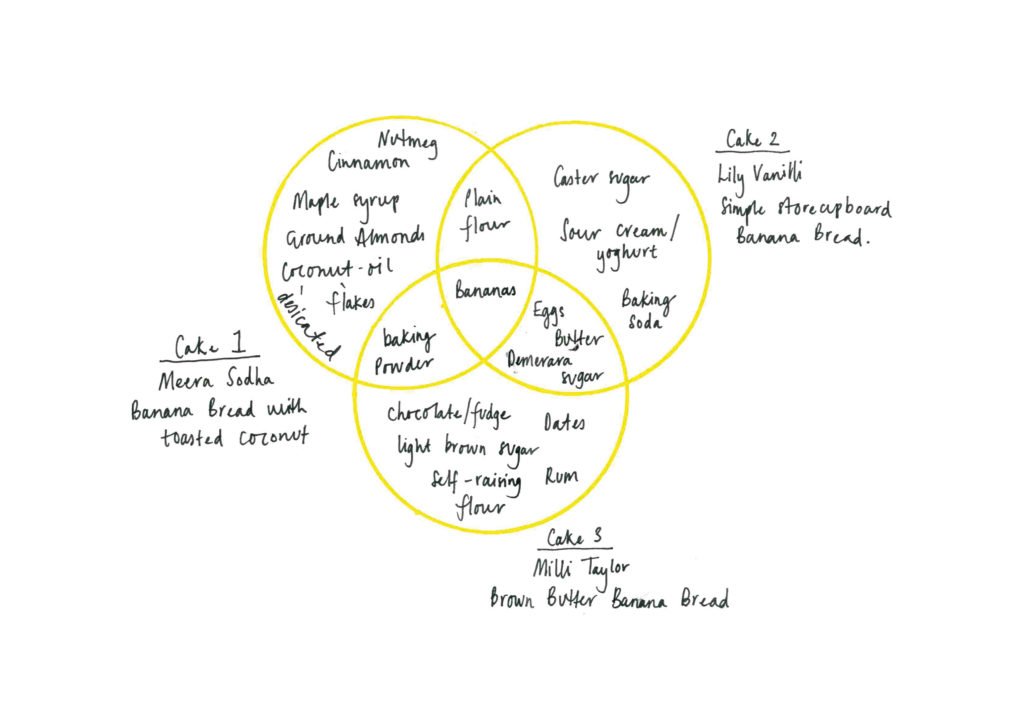 Nutmeg
Cinnamon
Maple syrup
Ground Almonds
Coconut-oil
flakes
desicated
Plain
flour
Caster sugar
Sour cream/
yoghurt
Baking
soda
Bananas
baking
Powder
Eggs
Butter
Demerara
sugar
Chocolate/fudge
light brown sugar
self-raising
flour
Dates
Rum
Cake 1
Meera Sodha
Banana Bread with
toasted coconut
Cake 2
Lily Vanilli
Simple storecupboard
Banana Bread.
Cake 3
Milli Taylor
Brown Butter Banana Bread